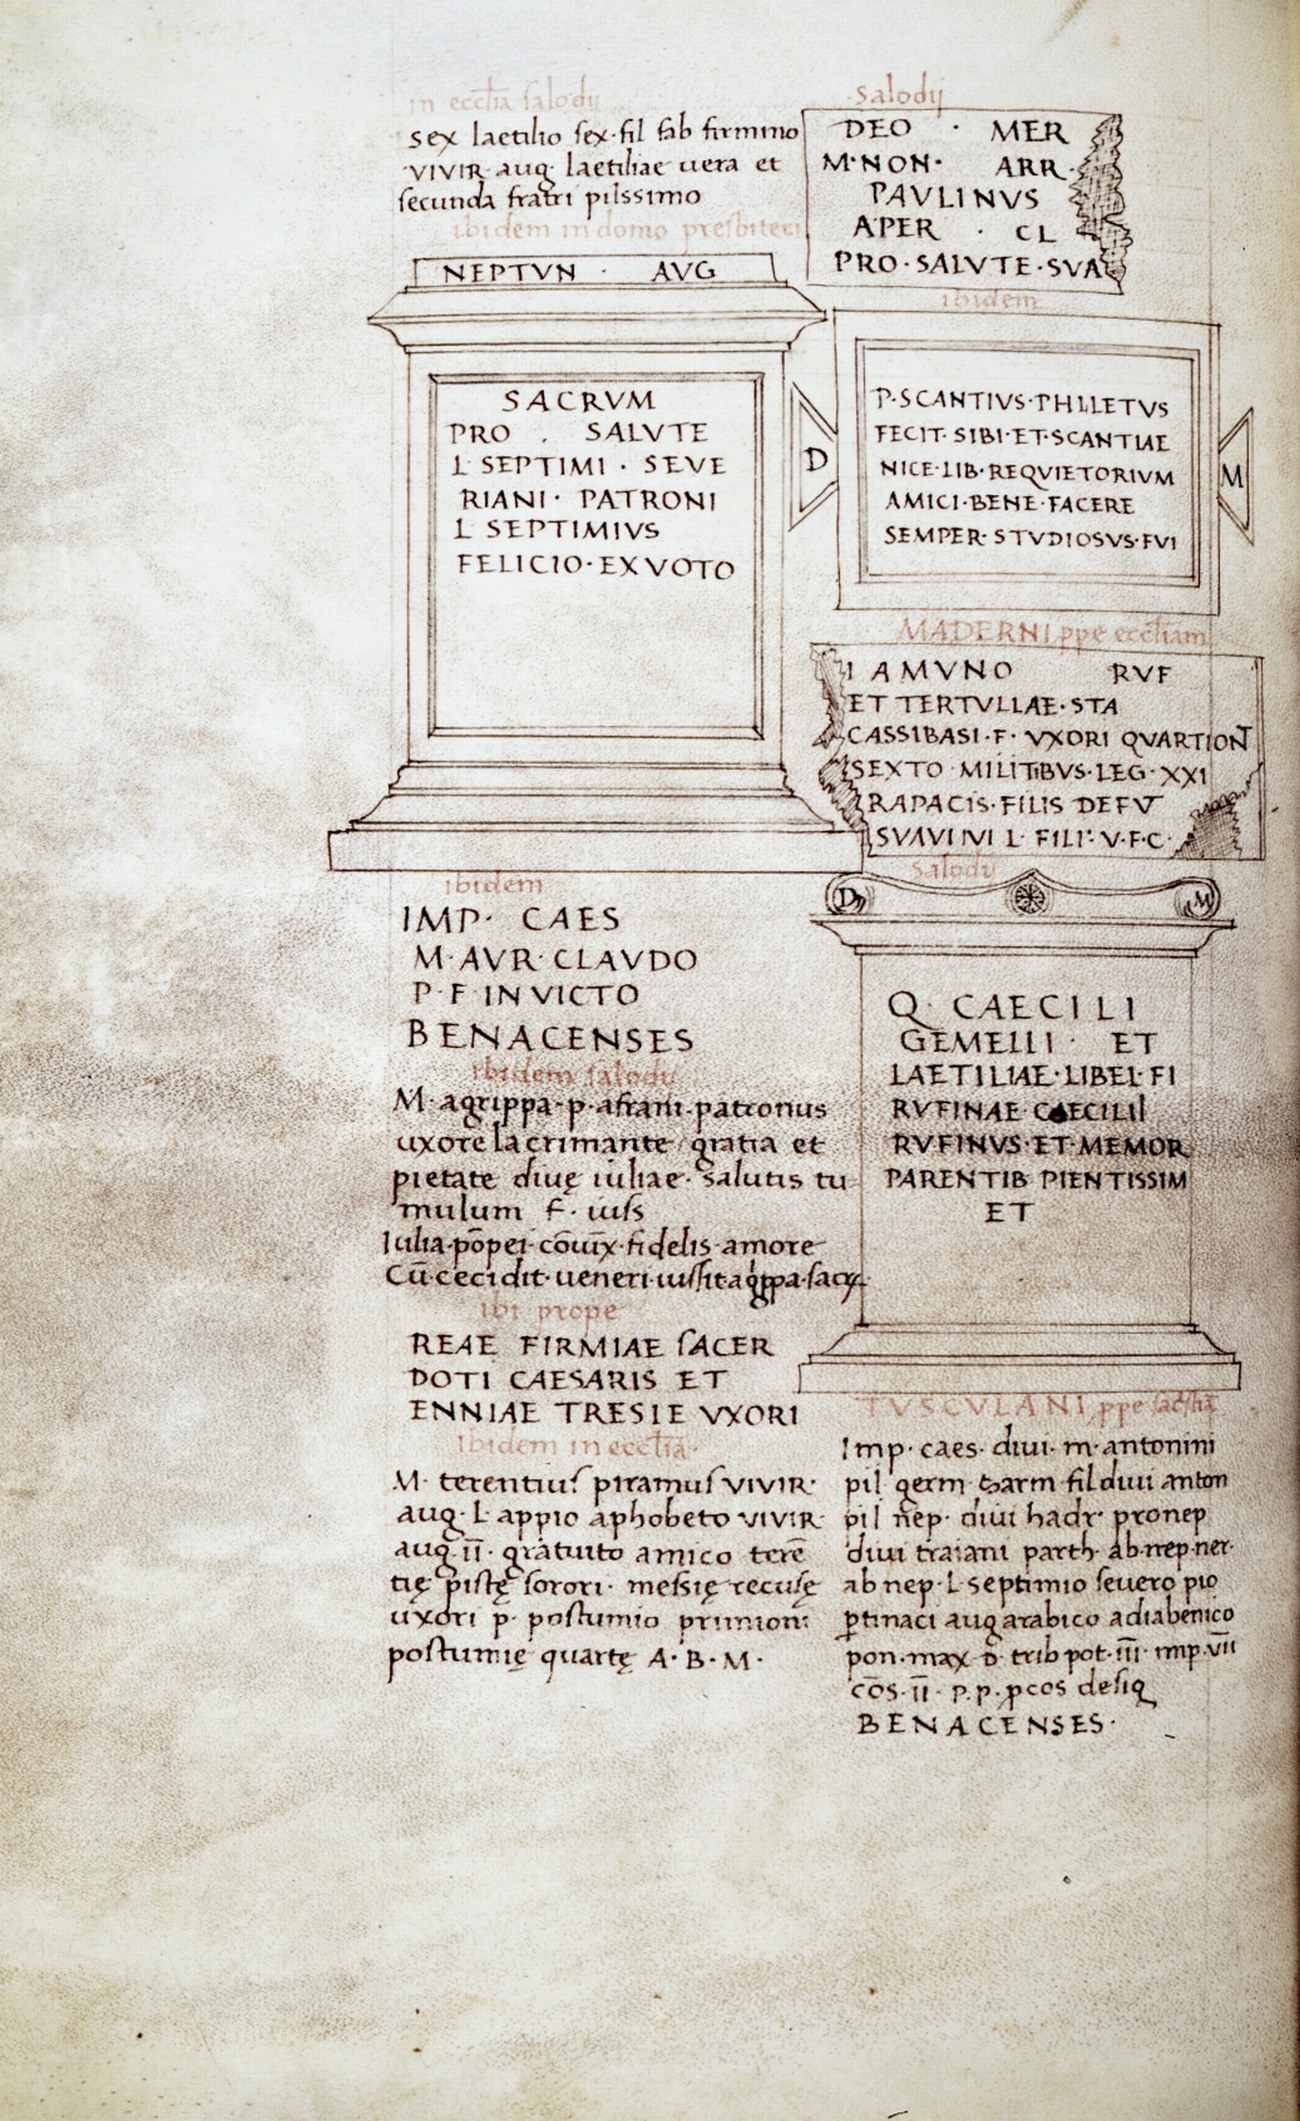 in ecclia salodij
sex laetilio sex·fil fab firmino
·VIVIR·aug· laetiliae uera et
secunda fratri piissimo
ibidem in domo presbiteri
NEPTVN · AVG
SACRVM
PRO . SALVTE
L SEPTIMI · SEVE
RIANI · PATRONI
L SEPTIMIVS
FELICIO·EX VOTO
ibidem
IMP· CAES
M·AVR·CLAVDO
P·F·INVICTO
BENACENSES
ibidem salodij
M·agrippa·p·afrani·patronus
uxore lacrimante gratia et
pietate diuę iuliae·salutis tu
mulum f· iuss
Iulia·pōpei·cōuix·fidelis·amore
Cū·cecidit·ueneri·iussit agppa·sacr
ibi prope
REAE FIRMIAE SACER
DOTI CAESARIS ET
ENNIAE TRESIE VXORI
Ibidem in ecclīa·
M· terentius piramus VIVIR·
aug·L·appio aphobeto VIVIR·
aug·īī· gratuito amico terē
tię pistę sorori· messię recusę
uxori p· postumio primioni
postumię quartę A·B·M·
Salodij
DEO · MER
M·NON· ARR·
PAVLINVS
APER · CL
PRO·SALVTE·SVA
ibidem
D
P·SCANTIVS·PHILETVS
FECIT·SIBI·ET·SCANTIAE
NICE·LIB·REQVIETORIVM
AMICI·BENE·FACERE
SEMPER·STVDIOSVS·FVI
M
MADERNI ppe eccliam
I AMVNO RVF
ET TERTVLLAE·STA
CASSIBASI·F· VXORI QVARTIONI
SEXTO·MILITIBVS·LEG·XXI
RAPACIS·FILIS DEFV
SVAVI L· FILI· V·F·C·
Salodij
D M
Q· CAECILI
GEMELLI · ET
LAETILIAE·LIBEL·FI
RVFINAE·CAECILII
RVFINVS·ET·MEMOR
PARENTIB PIENTISSIM
ET
TVSCVLANI ppe
Imp· caes· diui· m·antonini
pii germ·sarm·fil diui anton
pii nep· diui hadr· pronep
diui traiani parth· abnep·ner·
abnep·L·septimio seuero pio
ptinaci aug arabico adiabenico
pon·max trib pot·īīī· imp·vīī
cōs·īī· p.p.pcos desig
BENACENSES·